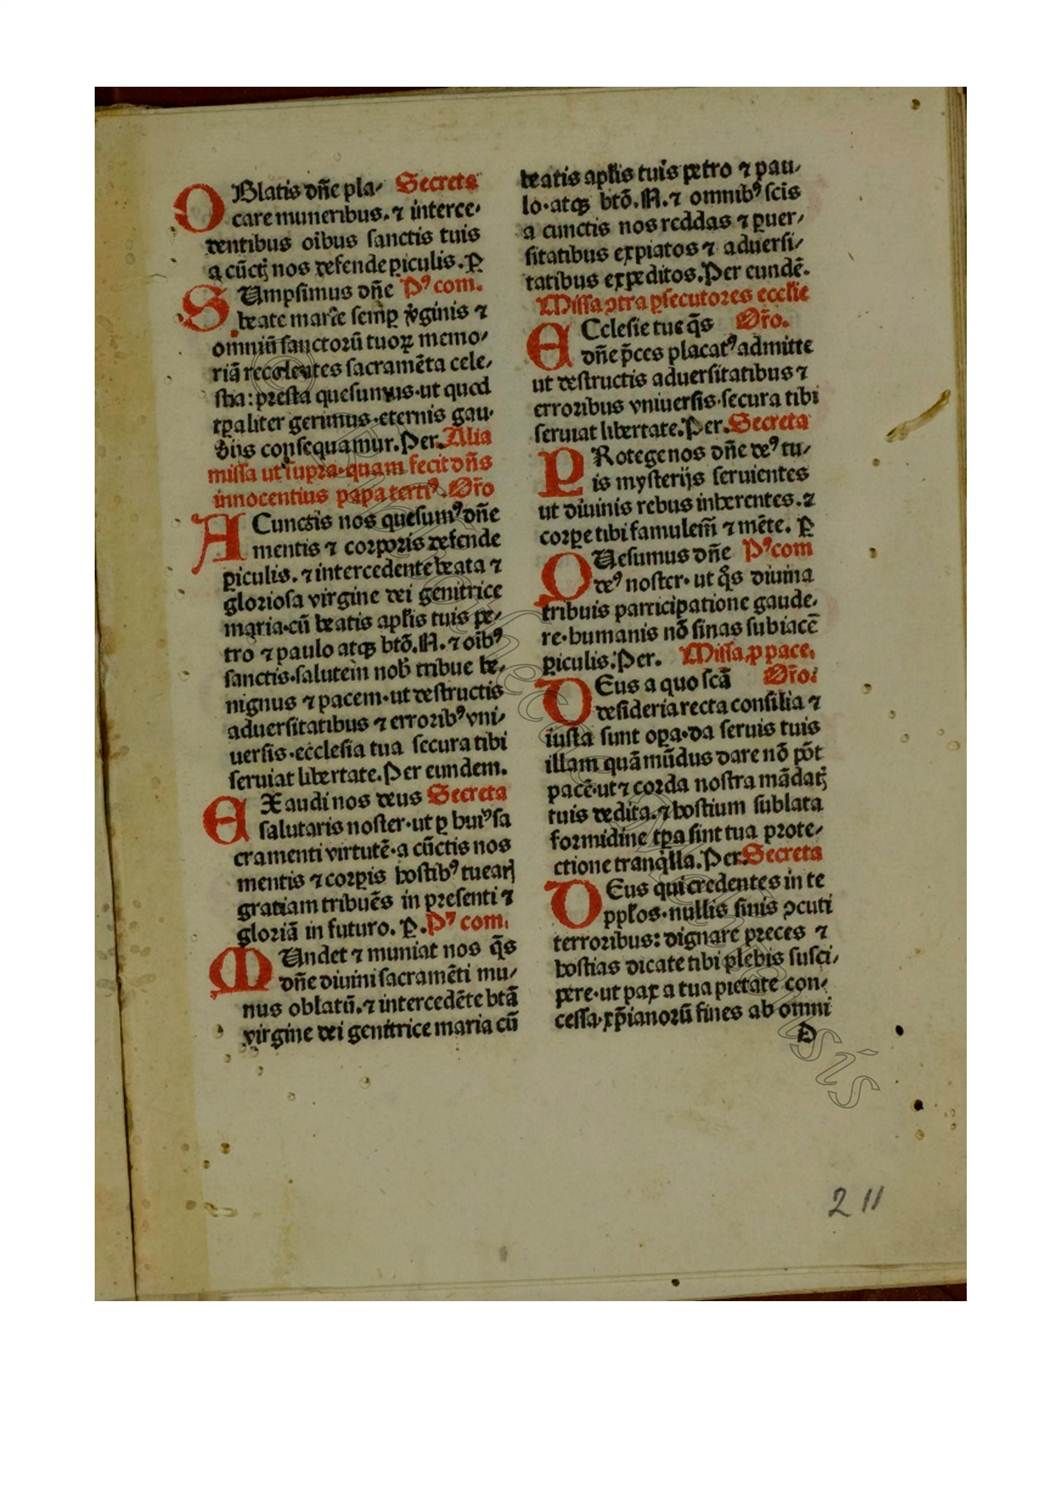 OBlatis dñe pla⸗ Secreta
care muneribus. ⁊ interce⸗
dentibus oibus sanctis tuis
a cūctꝭ nos defende ꝑiculis. Ꝑ
SUmpsimus dñe Pꝰ com.
beate marie semꝑ v̄ginis ⁊
omniū sanctorū tuoꝝ memo⸗
riā recolentes sacramēta cele⸗
stia: presta quesumus·ut quod
tꝑaliter gerimus·eternis gau⸗
diis consequamur. Per. Alia
missa ut supra·quam fecit dñs
innocentius papa tertiꝰ. Or̄o
ACunctis nos quesumꝰ dñe
mentis ⁊ corporis defende
ꝑiculis. ⁊ intercedente beata ⁊
gloriosa virgine dei genitrice
maria·cū beatis apl̄is tuis pe⸗
tro ⁊ paulo atqꝫ btō. N. ⁊ oībꝰ
sanctis·salutem nob̄ tribue be⸗
nignus ⁊ pacem·ut destructis
aduersitatibus ⁊ erroribꝰ vni⸗
uersis·ecclesia tua secura tibi
seruiat libertate. Per eundem.
EXaudi nos deus Secreta
salutaris noster·ut ꝑ huiꝰ sa
cramenti virtutē·a cūctis nos
mentis ⁊ corꝑis hostibꝰ tuearꝭ
gratiam tribuēs in presenti ⁊
gloriā in futuro. Ꝑ. Pꝰ com.
MUndet ⁊ muniat nos q̄s
dñe diuini sacramēti mu⸗
nus oblatū. ⁊ intercedēte btā
virgine dei genitrice maria cū
beatis apl̄is tuis petro ⁊ pau⸗
lo·atqꝫ btō. N. ⁊ omnibꝰ scīs
a cunctis nos reddas ⁊ ꝑuer⸗
sitatibus expiatos ⁊ aduersi⸗
tatibus expeditos. Per eundē.
Missa ꝯtra ꝑsecutores eccl̄ie
ECclesie tue q̄s Or̄o.
dñe p̄ces placatꝰ admitte
ut destructis aduersitatibus ⁊
erroribus vniuersis·secura tibi
seruiat libertate. Per. Secreta
PRotege nos dñe deꝰ tu⸗
is mysterijs seruientes
ut diuinis rebus inherentes. ⁊
corpe tibi famulem̄ ⁊ mēte. Ꝑ
QUesumus dñe Pꝰ com
deꝰ noster·ut q̄s diuina
tribuis participatione gaude⸗
re·humanis nō sinas subiacē
ꝑiculis. Per. Missa ꝓ pace.
Or̄o.
DEus a quo scā
desideria recta consilia ⁊
iusta sunt oꝑa·da seruis tuis
illam quā mūdus dare nō pōt
pacē·ut ⁊ corda nostra mādatꝭ
tuis dedita. ⁊ hostium sublata
formidine tꝑa sint tua prote⸗
ctione tranq̇lla. Per. Secreta
DEus qui credentes in te
ppl̄os·nullis sinis ꝯcuti
terroribus: dignare preces ⁊
hostias dicate tibi plebis susci⸗
pere·ut pax a tua pietate con⸗
cessa·xp̄ianorū fines ab omni
D
211